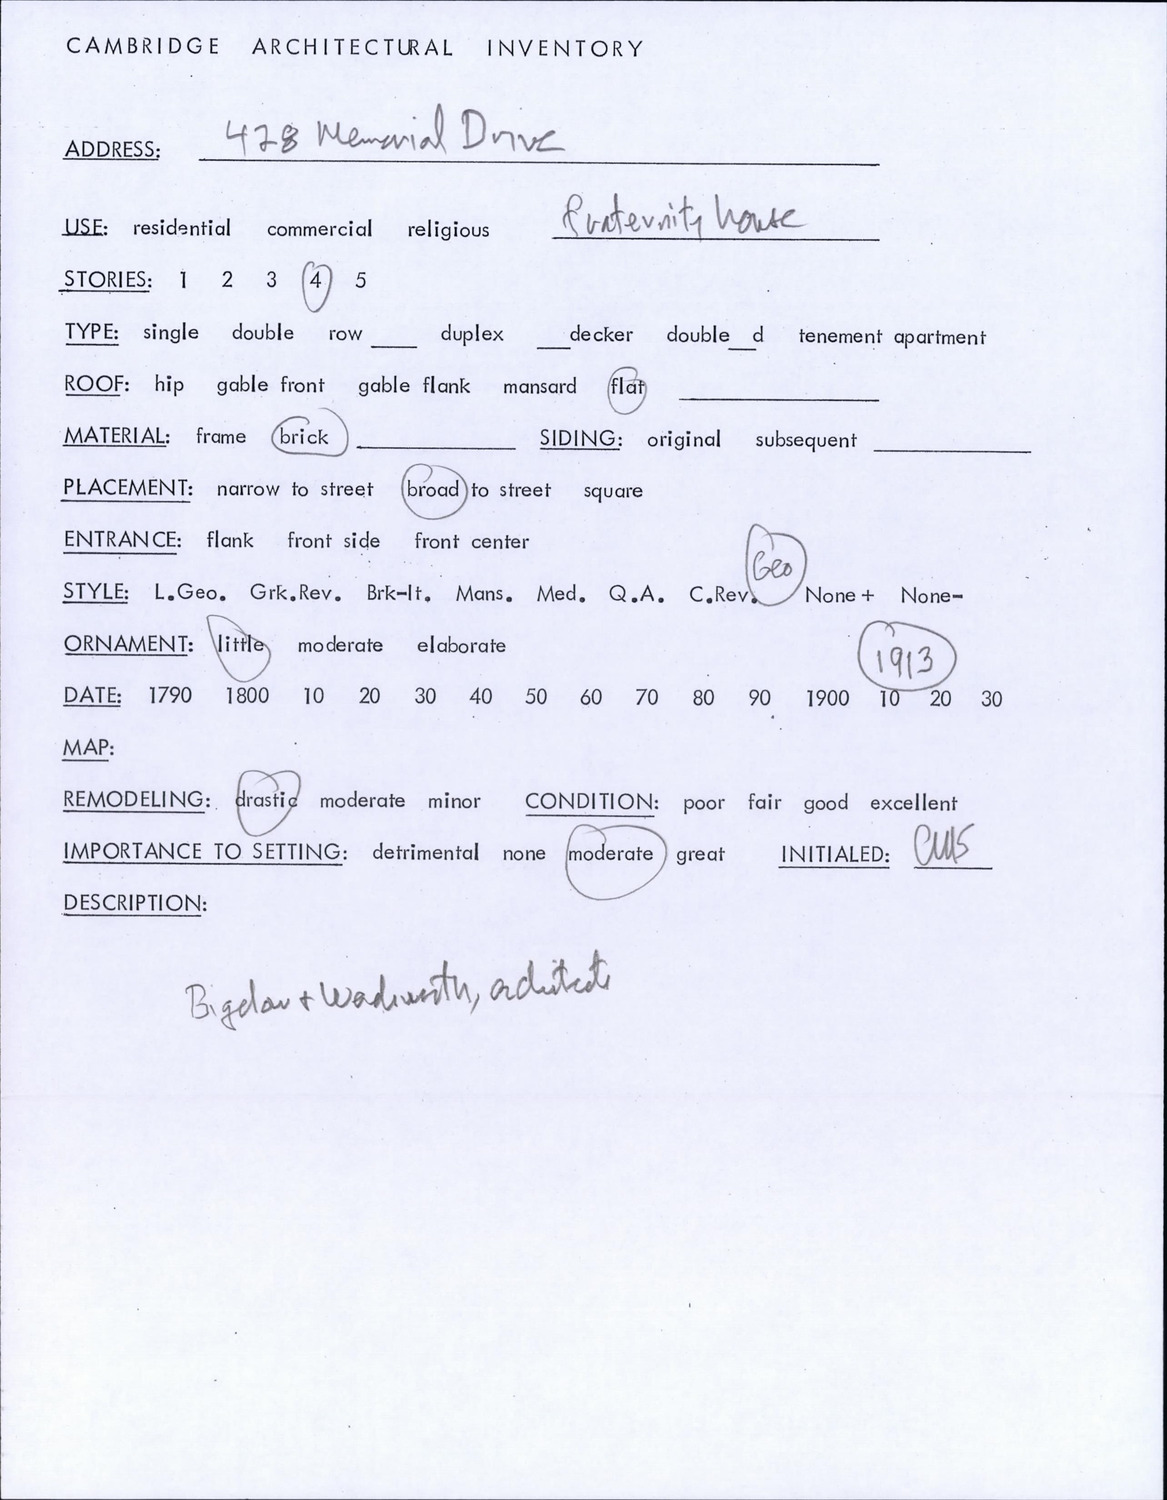 CAMBRIDGE ARCHITECTURAL INVENTORY
ADDRESS: 428 Memorial Drive
USE: residential commercial religious Fraternity house
STORIES: 1 2 3 4 5
TYPE: single double row ___ duplex ___decker double__d tenement apartment
ROOF: hip gable front gable flank mansard flat
MATERIAL: frame brick SIDING: original subsequent
PLACEMENT: narrow to street broad to street square
ENTRANCE: flank front side front center
Geo
STYLE: L.Geo. Grk.Rev. Brk-It. Mans. Med. Q.A. C.Rev. None+ None-
ORNAMENT: little moderate elaborate
1913
DATE: 1790 1800 10 20 30 40 50 60 70 80 90 1900 10 20 30
MAP:
REMODELING: drastic moderate minor CONDITION: poor fair good excellent
IMPORTANCE TO SETTING: detrimental none moderate great INITIALED: CMS
DESCRIPTION:
Bigelow + Wadsworth, architects